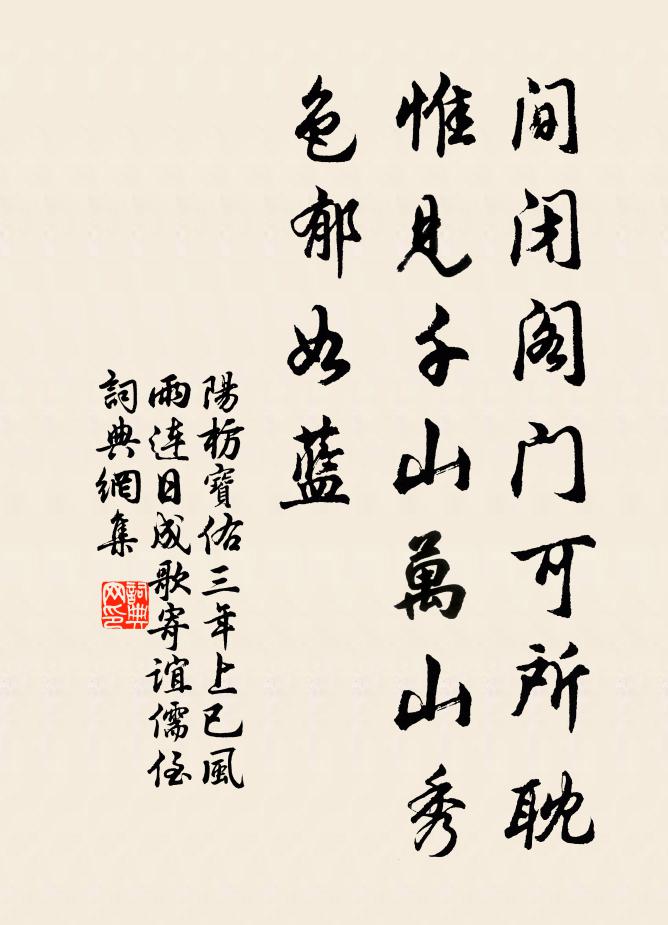 间闭阁门可所耽
惟見千山萬山秀
色郁如藍
陽枋寶佑三年上巳風
雨連日成歌寄誼儒侄
詞典網集
詞典
网印